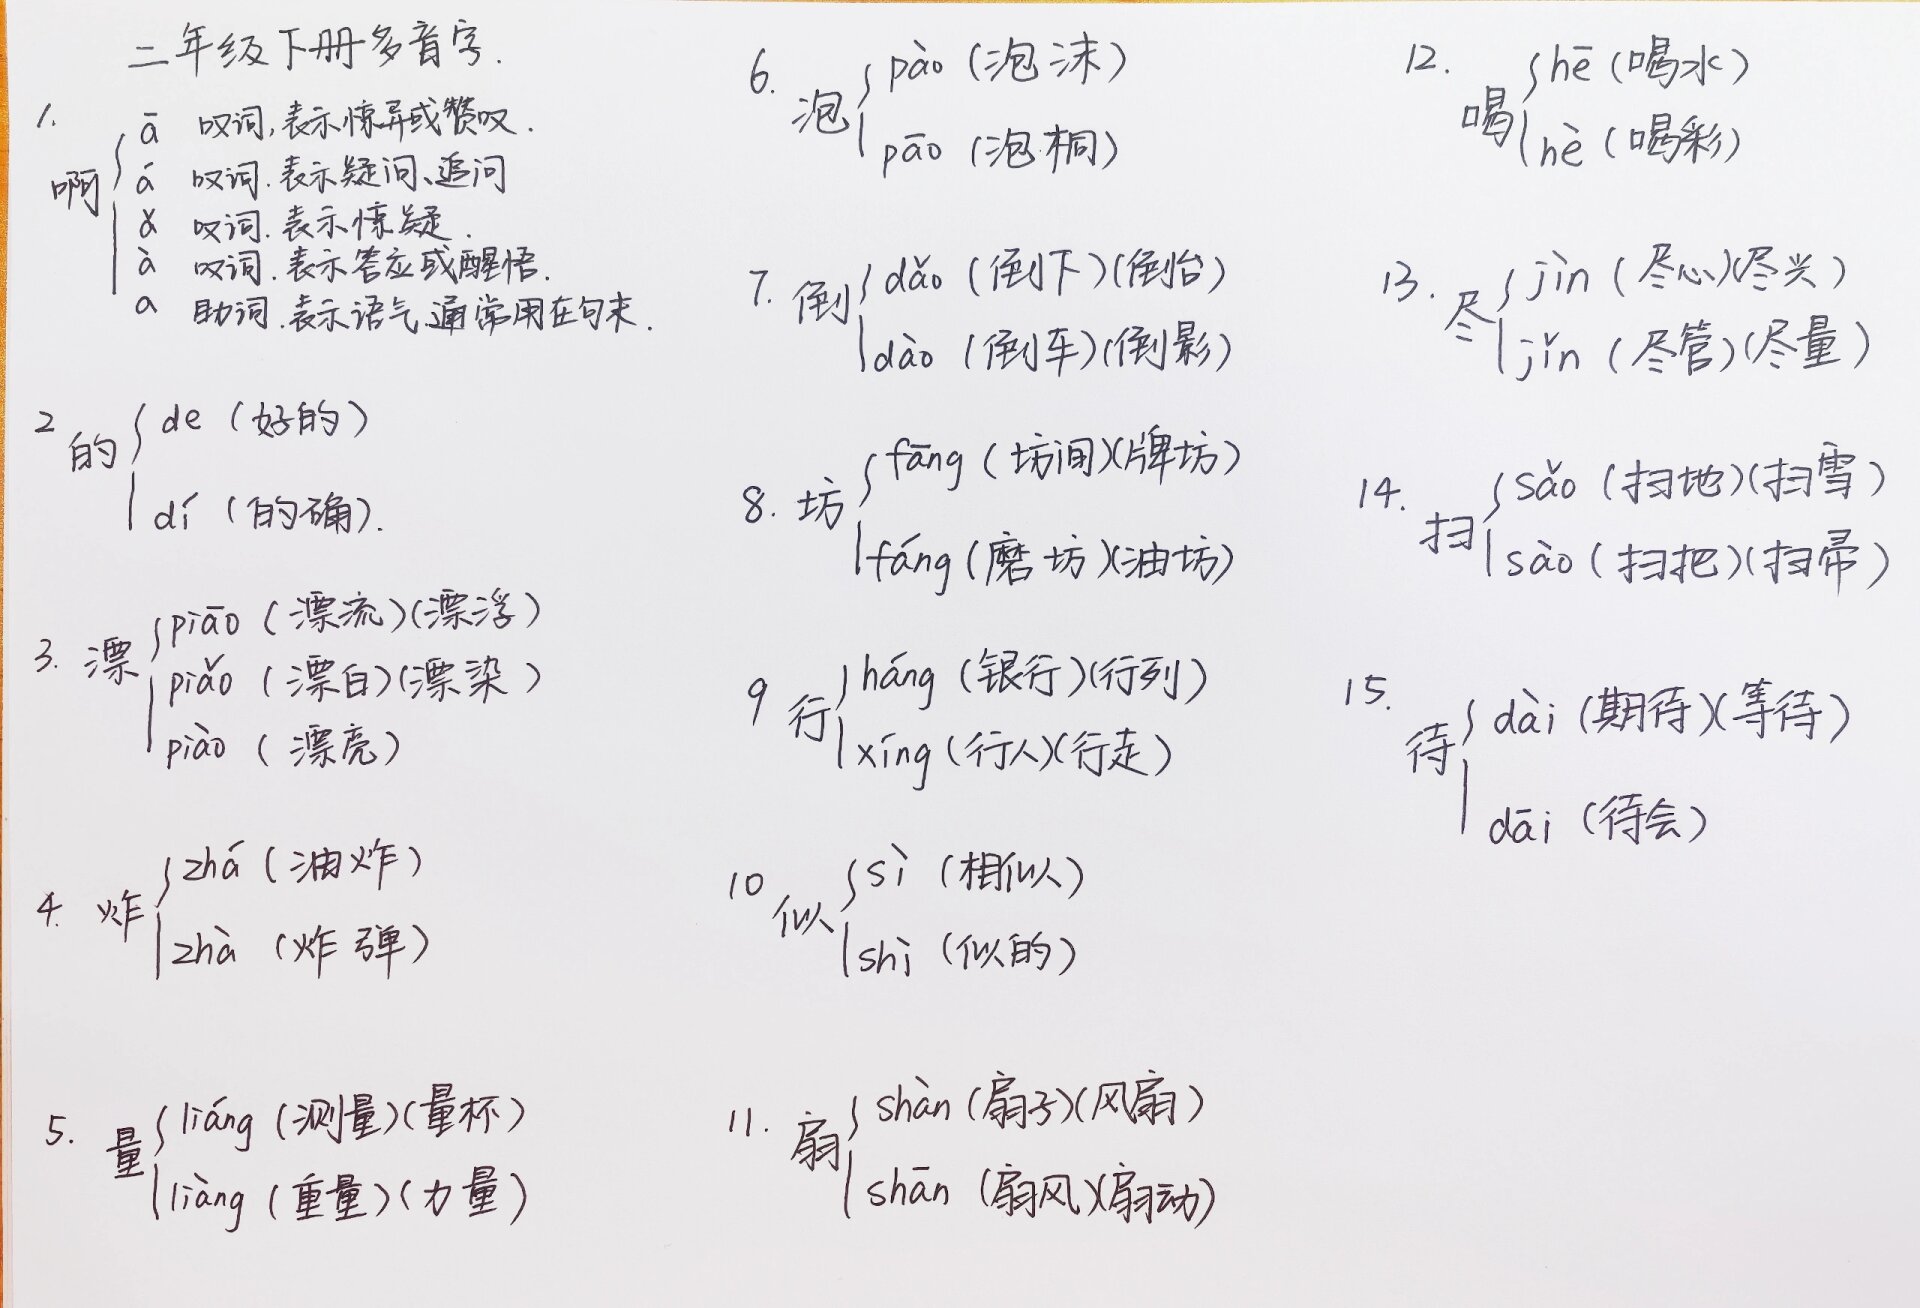 二年级下册多音字.
1. 啊
ā 叹词,表示惊异或赞叹.
á 叹词.表示疑问、追问
ǎ 叹词.表示惊疑.
à 叹词.表示答应或醒悟.
a 助词.表示语气,通常用在句末.
2 的
de (好的)
dí (的确).
3. 漂
piāo (漂流)(漂浮)
piǎo (漂白)(漂染)
piào (漂亮)
4. 炸
zhá (油炸)
zhà (炸弹)
5. 量
liáng (测量)(量杯)
liàng (重量)(力量)
6. 泡
pào (泡沫)
pāo (泡桐)
7. 倒
dǎo (倒下)(倒台)
dào (倒车)(倒影)
8. 坊
fāng (坊间)(牌坊)
fáng (磨坊)(油坊)
9 行
háng (银行)(行列)
xíng (行人)(行走)
10 似
sì (相似)
shì (似的)
11. 扇
shàn (扇子)(风扇)
shān (扇风)(扇动)
12. 喝
hē (喝水)
hè (喝彩)
13. 尽
jìn (尽心)(尽兴)
jǐn (尽管)(尽量)
14. 扫
sǎo (扫地)(扫雪)
sào (扫把)(扫帚)
15. 待
dài (期待)(等待)
dāi (待会)